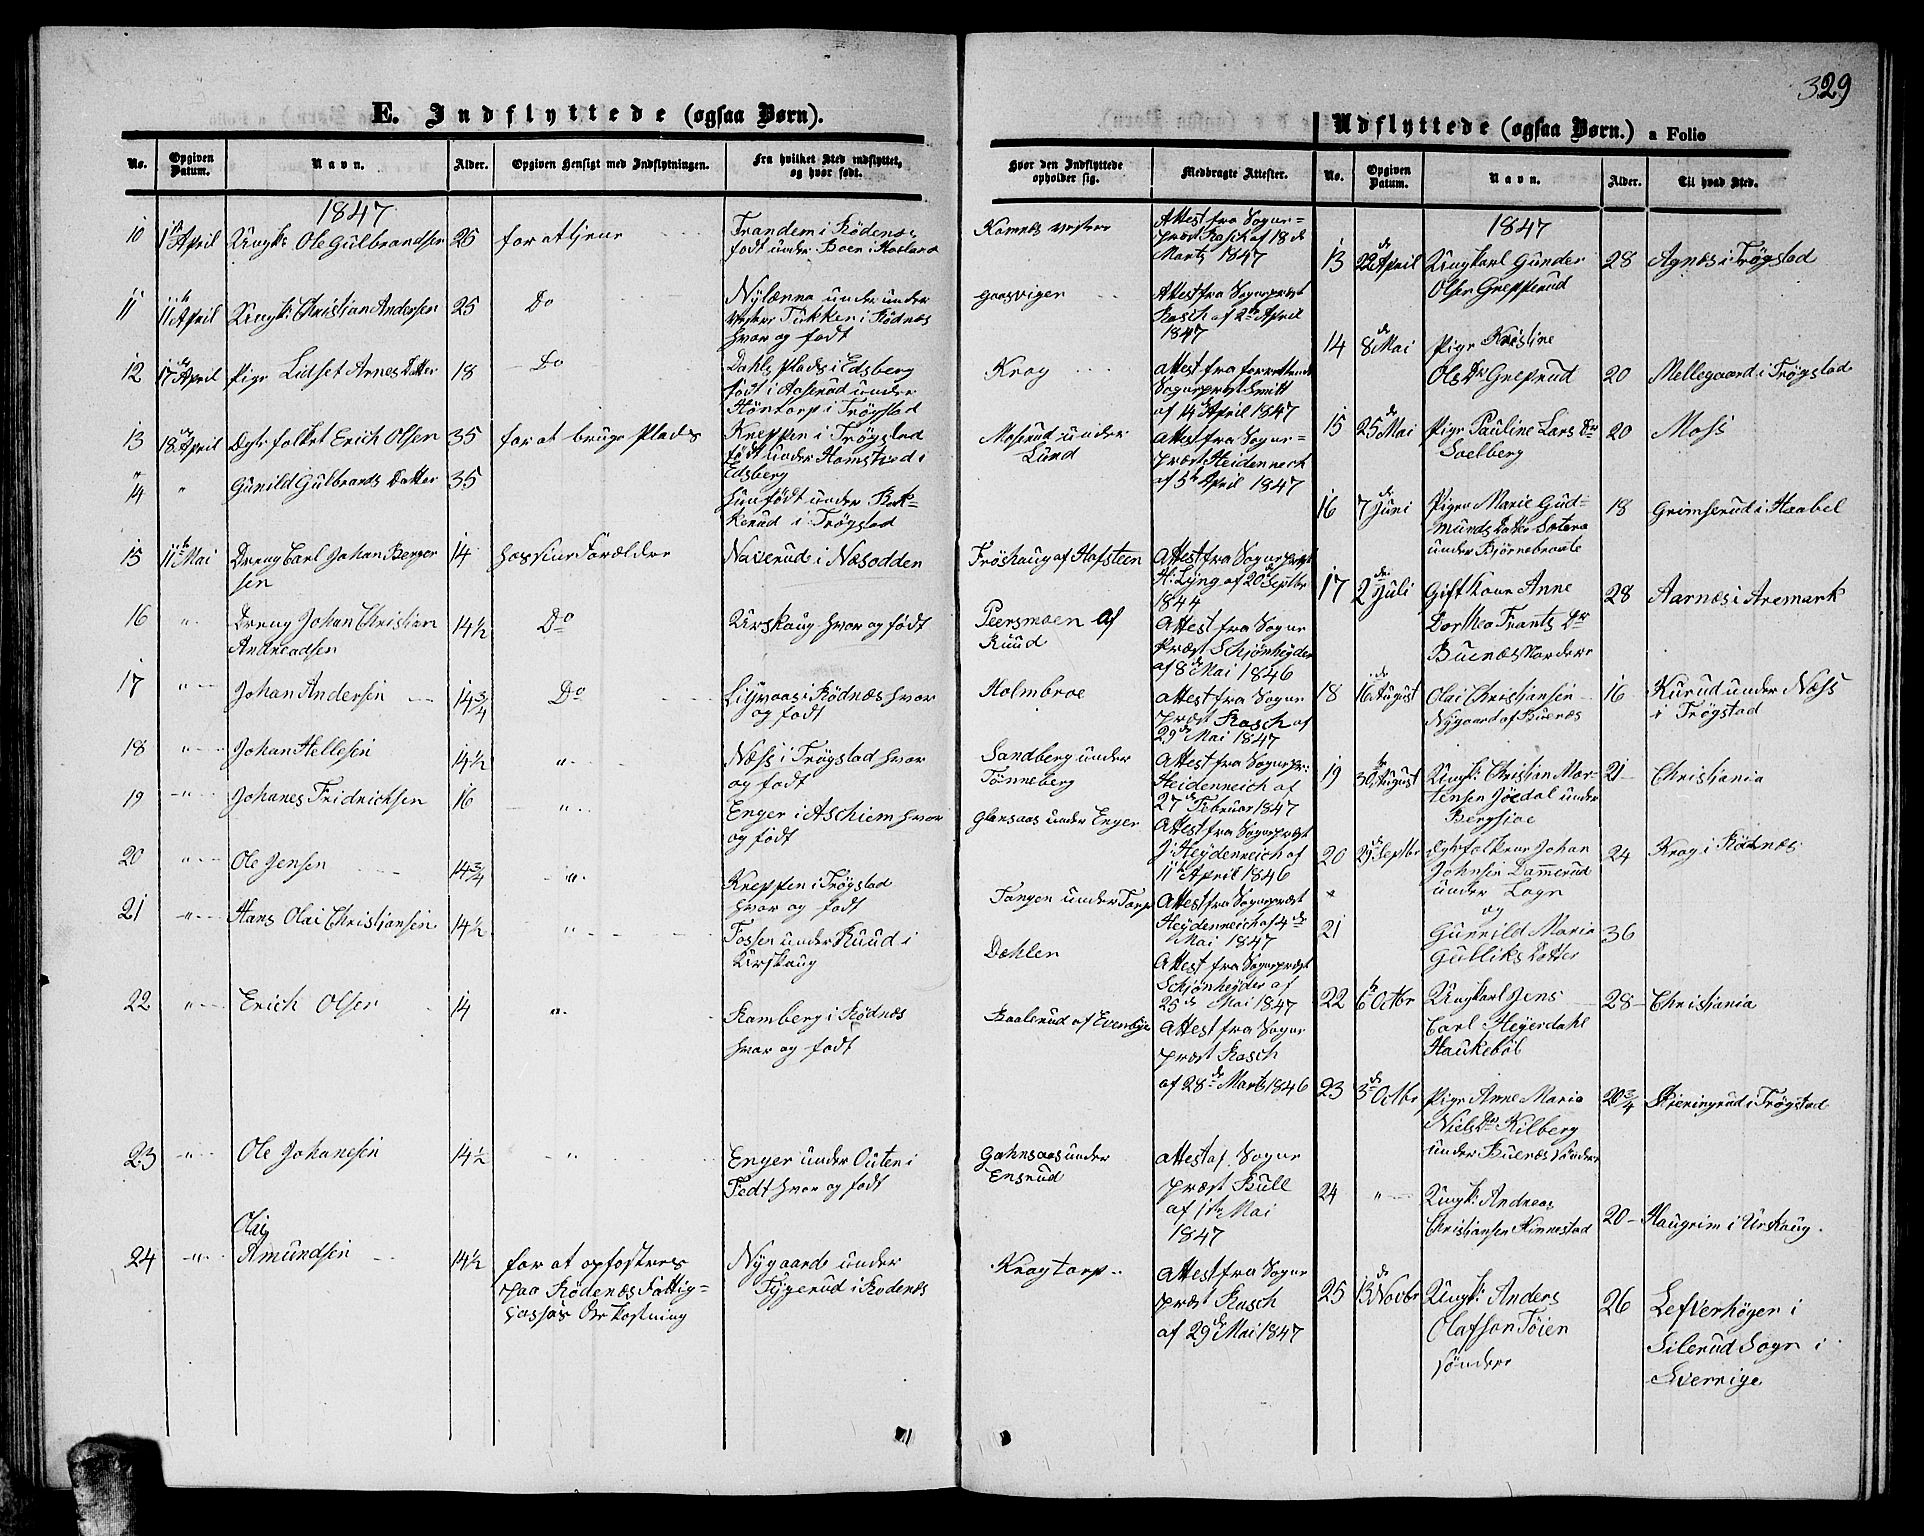 329
E. Indflyttede (ogsaa Børn).
No.
Opgiven Datum.
Navn.
Alder.
Opgiven Hensigt med Indflytningen.
Fra hvilket Sted indflyttet, og hvor født.
Hvor den Indflyttede opholder sig.
Medbragte Attester.
1847
10 1ste April Ungk: Ole Gulbrandsen 25 for at tjene
Trandem i Rødenæs
født under Boen i
Kamnes vestre
Attest fra Sogne-
præst Rasch af 18de
Marts 1847
11 11te April Ungk: Christian Andersen 25 Do
Nylænna under
vestre Tukken i Rødnæs
hvor og født
gaasvigen
Attest fra Sognepræst
Rasch af 2den April
1847
12 17de April Pige Lidset Arnes Datter 18 Do
Dahls plads i Edsberg
født i Aaserud under
Høntorp i Trøgstad
Krog
Attest fra forrettende
Sognepræst Smitt
af 14de April 1847
13 18de April Ægtefolket Erich Olsen 35 for at bruge Plads
Kreppen i Trøgstad
født under Homstved i
Edsberg
Moserud under
Lund
Attest fra Sogne-
præst Heidenreich
af 5te April 1847
14 " Gunild Gulbrands Datter 35
hun født under Bak-
kerud i Trøgstad
15 11te Mai Dreng Carl Johan Berger
sen 14 hos sine Forældre
Naverud i Næsodden
Frøshaug af Hafsteen
Attest fra Sognepræst
H: Lyng af 20de Septbr
1844
16 " Dreng Johan Christian
Andreadsen 14½ Do
Urskaug hvor og født
Peersmoen af
Ruud
Attest fra Sogne
Præst Schjønheyder
af 8de Mai 1846
17 " Johan Andersen 14¾ Do
i Rødnæs hvor
og født
Holmbroe
Attest fra Sogne
præst Rasch af
29de Mai 1847
18 " Johan Hellesen 14½ "
Næss i Trøgstad hvor
og født
Sandberg under
Tønneberg
Attest fra Sognepr:
Heidenreich af
27de Februar 1847
19 " Johanes Fridrichsen 16 "
Enger i Aschiem hvor
og født
Glensaas under Enger
Attest fra Sognepræst
J: Heydenreich af
11te April 1846
20 " Ole Jensen 14¾ "
Kreppen i Trøgstad
hvor og født
Tangen under Torp
Attest fra Sognepræst
Heydenreich af 4de
Mai 1847
21 " Hans Olai Christiansen 14½ "
Fossen under Ruud i
Urskaug
Dæhlen
Attest fra Sognepræst
Schjønheyder af
25de Mai 1847
22 " Erich Olsen 14 "
Kamberg i Rødnæs
hvor og født
Kaalerud af Evenbye
Attest fra Sogne
præst Rasch
af 28de Marts 1846
23 " Ole Johanesen 14½ "
Enger under Outen i
Fedt hvor og født
Gahnsaas under
Ensrud
Attest af Sogne
præst Bull
af 1ste Mai
1847
24 " Olig
Amundsen 14½ for at opfostres
paa Rødenæs Fattig-
casses Bekostning
Nygaard under
Tygerud i Rødenæs
Kragtorp
Attest fra Sogne
præst Rasch
af 29de Mai 1847
Udflyttede (ogsaa Børn.) a Folio
No.
Opgiven Datum.
Navn.
Alder.
Til hvad Sted.
1847
13 22de April Ungkarl Gunder
Olsen Grepperud 28 Agnæs i Trøgstad
14 8de Mai Pige Kristine
Ols Dr Greprud 20 Mellegaard i Trøgstad
15 25de Mai Pige Pauline Lars Dr
Soelberg 20 Moss
16 7de Juni Pigen Marie Gud-
munds Datter
under Bjørnebraate 18 Grimserud i Haabel
17 2den Juli Gift Kone Anne
Dorthea Frants Dr
Buenæs Nordere 28 Aarnæs i Aremark
18 16de August Olai Christiansen
Nygaard af Buenæs 16 Kurud under Næss
i Trøgstad
19 30te August Ungk: Christian Mor-
tensen Joedal under
Bergsjøe 21 Christiania
20 29de Septbr Ægtefolkene Johan
Johnsen Dammerud
under Logn 24 Krog i Rødnæs
og
21 Gunnild Maria
Gulliks Datter 36
22 6te Octbr Ungkarl Jens
Carl Heyerdahl
Haukebøl 28 Christiania
23 3de Octbr Pige Anne Maria
Niels Dr Kilberg
under Buenæs søndre 20¾ Kjeringrud i Trøgstad
24 " Ungk: Andreas
Christiansen Kinnestad 20 Haugrim i Urskaug.
25 13de Novbr Ungk: Anders
Olafson Tøien
søndere 26 Lefverhøgen i
Silerud Sogn i
Sverrige